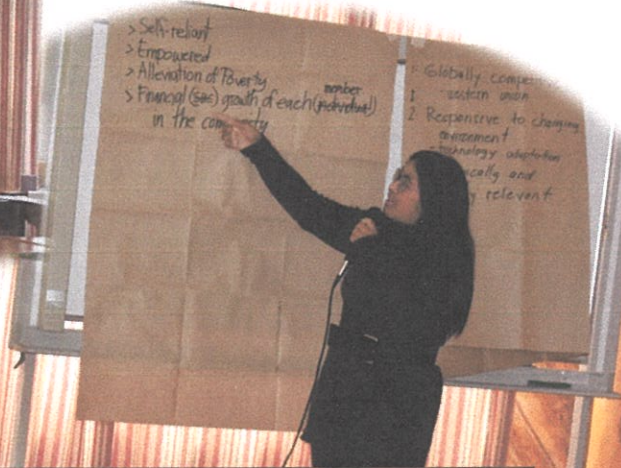 > Self-reliant
> Empowered
> Alleviation of Poverty
member
> Financial ( ) growth of each (individual)
in the community
Globally
1. western union
2 Responsive to changing
environment
- technology adaptation
and
relevant